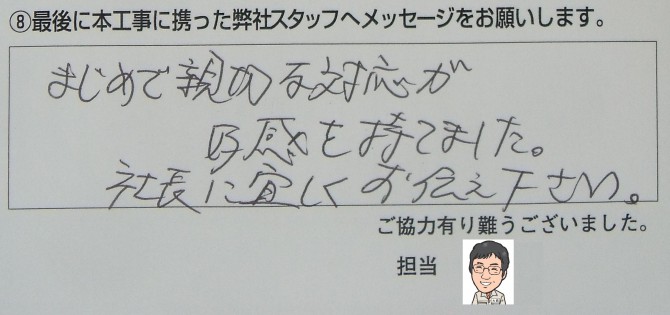 ⑧最後に本工事に携った弊社スタッフへメッセージをお願いします。
まじめで親切な対応が
好感を持てました。
社長に宜しくお伝え下さい。
ご協力有り難うございました。
担当